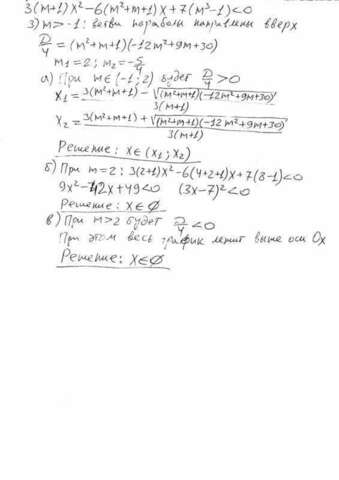 3(m+1)x²-6(m²+m+1)x+7(m³-1)<0
3) m>-1: ветви параболы направлены вверх
D/4 = (m²+m+1)(-12m²+9m+30)
m₁=2; m₂=-5/4
а) При m∈(-1;2) будет D/4>0
x₁ = (3(m²+m+1) - √((m²+m+1)(-12m²+9m+30)))/(3(m+1))
x₂ = (3(m²+m+1) + √((m²+m+1)(-12m²+9m+30)))/(3(m+1))
Решение: x∈(x₁; x₂)
б) При m=2: 3(2+1)x²-6(4+2+1)x+7(8-1)<0
9x²-42x+49<0 (3x-7)²<0
Решение: x∈∅
в) При m>2 будет D/4<0
При этом весь график лежит выше оси Ox
Решение: x∈∅